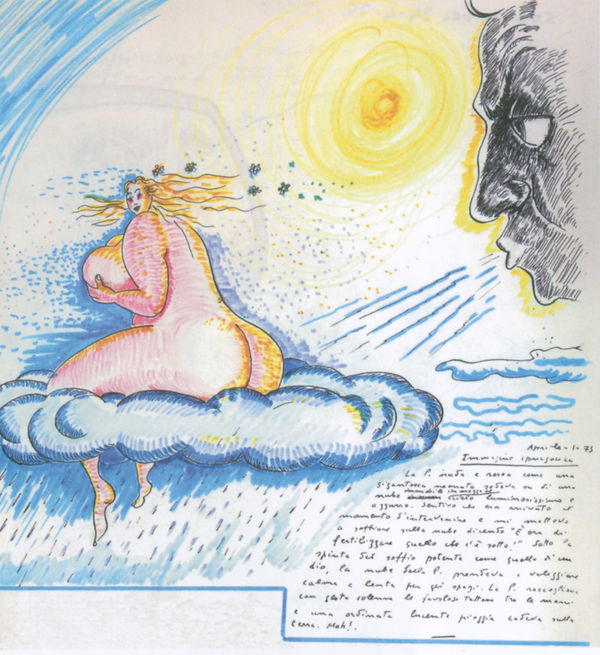 Aprile - 1° 73
Immagine ipnagogica
La P. nuda e rossa come una
gigantesca neonata sedeva su di una
nube in mezzo al cielo luminosissimo e
azzurro. Sentivo che era arrivato il
momento d'intervenire e mi mettevo
a soffiare sulla nube dicendo "È ora di
fertilizzare quello che c'è sotto!" Sotto la
spinta del soffio potente come quello di un
dio, la nube della P. prendeva a veleggiare
calma e lenta per gli spazi. La P. raccoglieva
con gesto solenne le favolose tettone tra le mani
e una ordinata lucente pioggia cadeva sulla
terra. Mah!